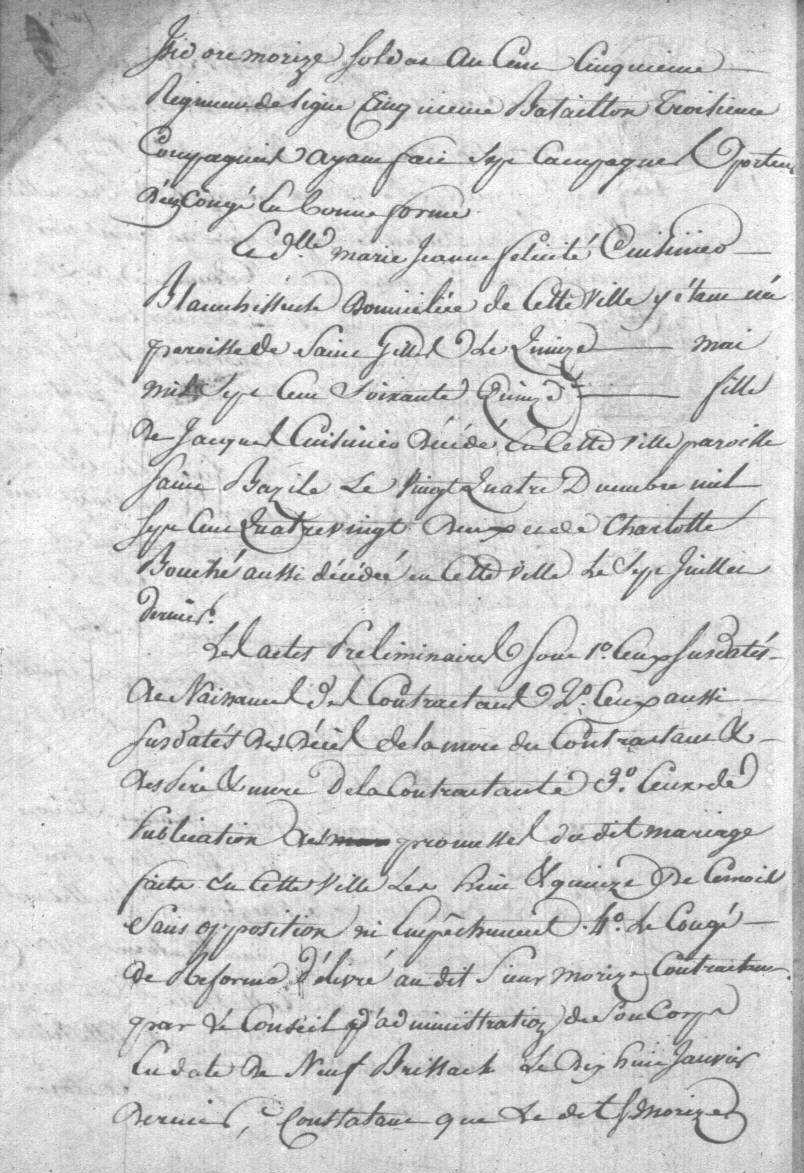 Isidore morize soldat au Cent Cinquieme
Regiment de ligne Cinquieme Bataillon Troisieme
Compagnie ayant fait sept Campagnes & porteur
d'un Congé en bonne forme
Et d.lle marie Jeanne felicité Cuisinier
Blanchisseuse Domiciliée de Cette ville y étant née
paroisse de Saint Gilles Le Quinze mai
mil Sept Cent Soixante Quinze fille
de Jacques Cuisinier décédé en Cette ville paroisse
Saint Bazile Le Vingt Quatre Decembre mil
sept Cent Quatrevingt deux et de Charlotte
Bouché aussi décédée en Cette ville Le Sept Juillet
dernier.
Les actes Préliminaires sont 1.o Ceux susdatés
de Naissances des Contractants 2.o Ceux aussi
susdatés des décès de la mere du Contractant &
des Pere & mere de la Contractante 3.o Ceux de
Publication des promesses du dit mariage
faites en Cette ville Les huit & quinze de Cemois
Sans opposition ni Empêchement 4.o Le Congé
de Reforme délivré au dit Sieur morize Contractant
par Le Conseil d'administration de Son Corps
En date de Neuf Brissack Le dix huit Janvier
dernier, Constatant que Le dit S. morize